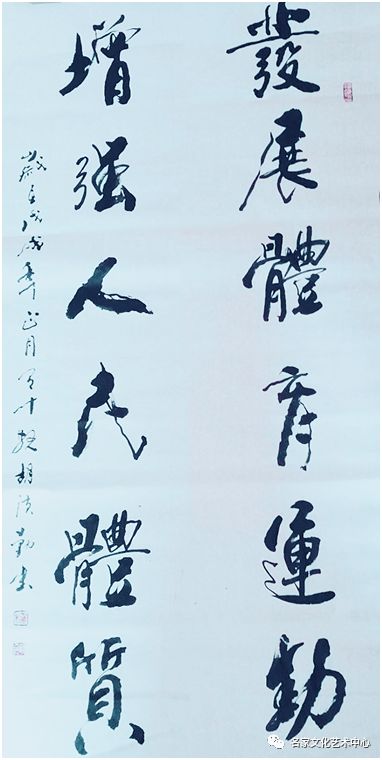 發展體育運動
增强人民體質
歲在戊戌年正月 胡 勤書
名家文化艺术中心